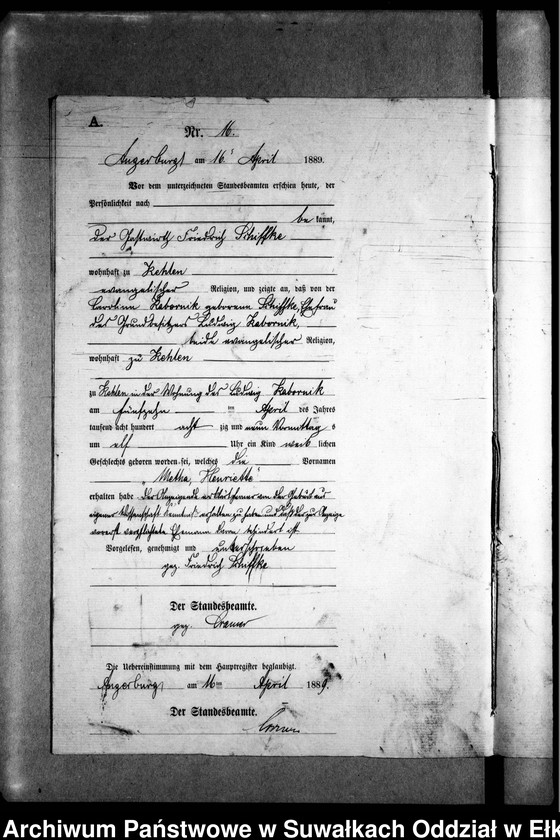 A.
Nr. 16.
Angerburg am 16ᵗ April 1889.
Vor dem unterzeichneten Standesbeamten erschien heute, der
Persönlichkeit nach
be kannt,
der Gastwirth Friedrich Schiffke
wohnhaft zu Kehlen
evangelischer Religion, und zeigte an, daß von der
Caroline Kabornik geborenen Schiffke, Ehefrau
des Grundbesitzers Ludwig Kabornik,
beide evangelischer Religion,
wohnhaft zu Kehlen
zu Kehlen in der Wohnung des Ludwig Kabornik
am fünfzehn ten April des Jahres
tausend acht hundert acht zig und neun Vormittag s
um elf Uhr ein Kind weib lichen
Geschlechts geboren worden sei, welches die Vornamen
„Metha, Henriette“
erhalten habe. Der Anzeigende erklärt ferner von der Geburt aus
eigener Wissenschaft Kenntniß erhalten zu haben und daß der zur Anzeige
vorerst verpflichtete Ehemann daran behindert ist
Vorgelesen, genehmigt und unterschrieben
gez. Friedrich Schiffke
Der Standesbeamte.
gez.
Die Uebereinstimmung mit dem Hauptregister beglaubigt.
Angerburg am 16ten April 1889.
Der Standesbeamte.
Archiwum Państwowe w Suwałkach Oddział w Ełk